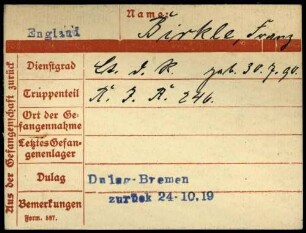 Name:
England Birkle, Franz
Aus der Gefangenschaft zurück
Dienstgrad Lt. d. R. geb. 30.7.90.
Truppenteil R. J. R. 246.
Ort der Ge-
fangennahme
Letztes Gefan-
genenlager
Dulag Dulag-Bremen
zurück 24-10.19
Bemerkungen
Form. 687.